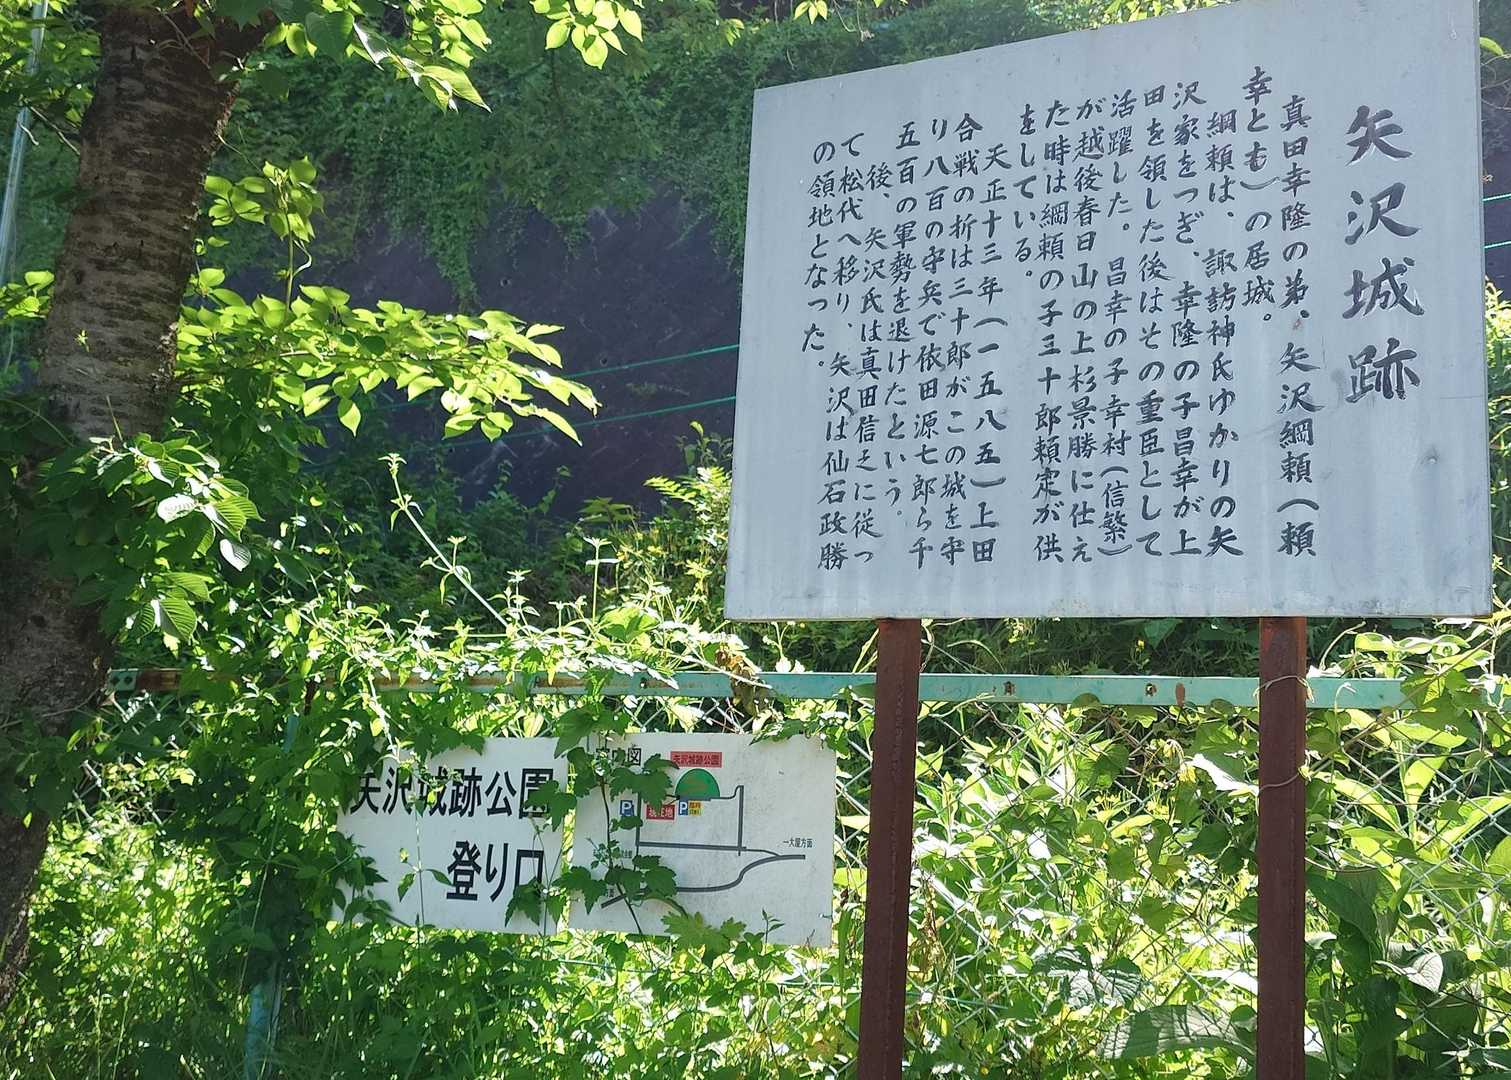 矢沢城跡
真田幸隆の弟、矢沢綱頼(頼
幸とも)の居城。
綱頼は、諏訪神氏ゆかりの矢
沢家をつぎ、幸隆の子昌幸が上
田を領した後はその重臣として
活躍した。昌幸の子幸村(信繁)
が越後春日山の上杉景勝に仕え
た時は綱頼の子三十郎頼定が供
をしている。
天正十三年(一五八五)上田
合戦の折は三十郎がこの城を守
り八百の守兵で依田源七郎ら千
五百の軍勢を退けたという。
後、矢沢氏は真田信之に従っ
て松代へ移り、矢沢は仙石政勝
の領地となった。
矢沢城跡公園
登り口
案内図
矢沢城跡公園
P
現在地
P
大屋方面